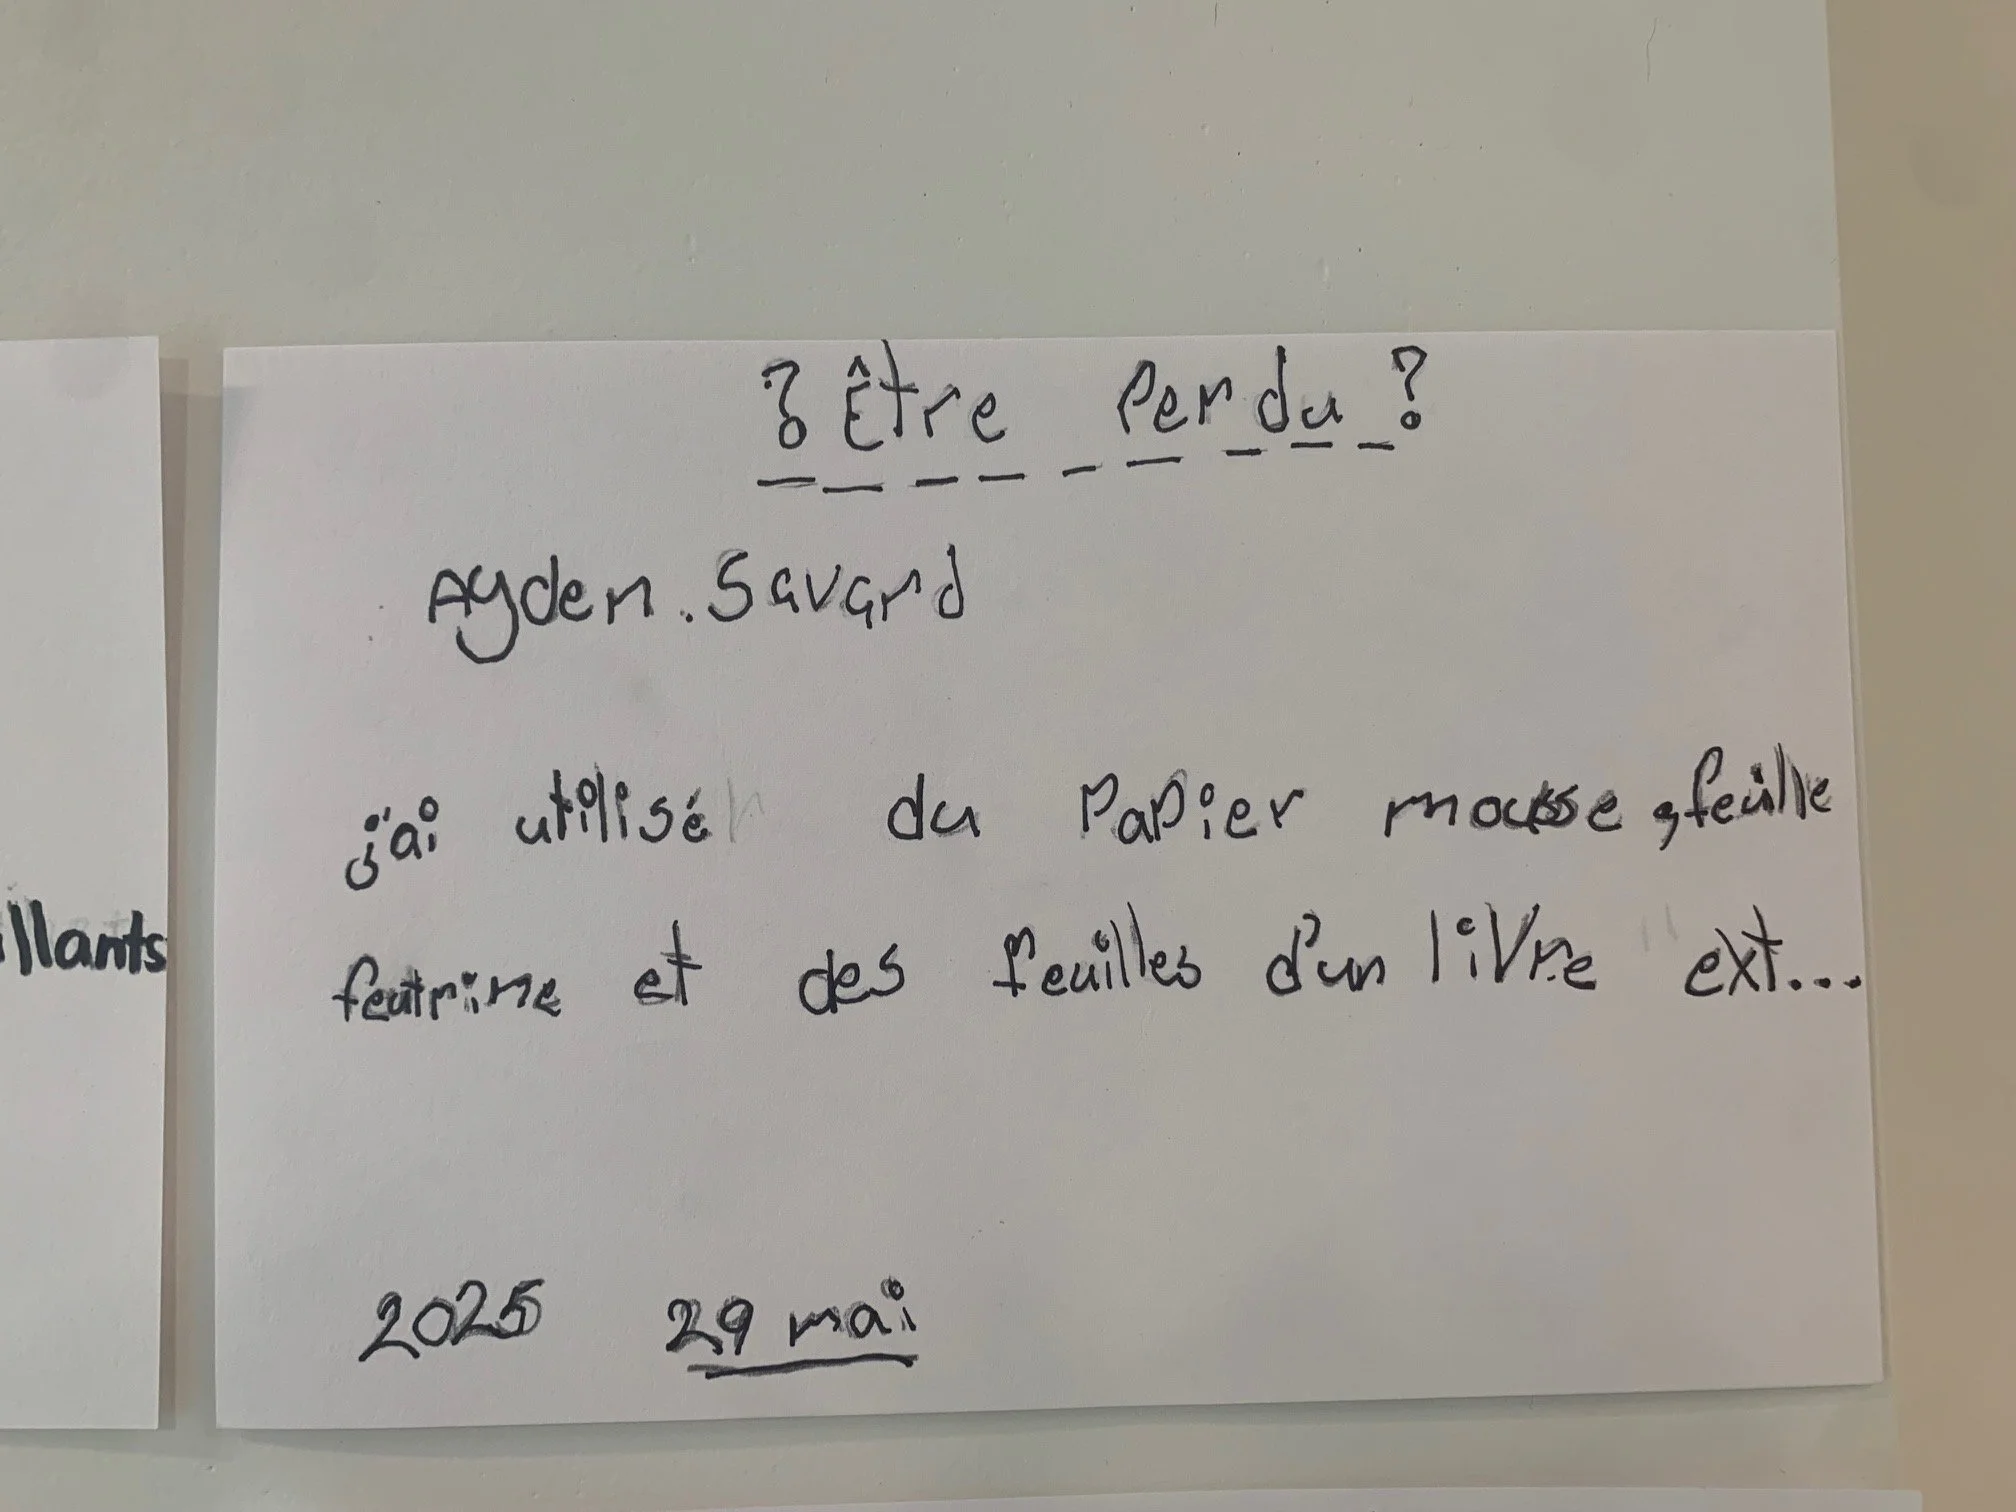 ? Être Perdu ?
Ayden. Savard
j'ai utilisé du papier mousse, feuille
feutrine et des feuilles d'un livre ext...
2025 29 mai
illants